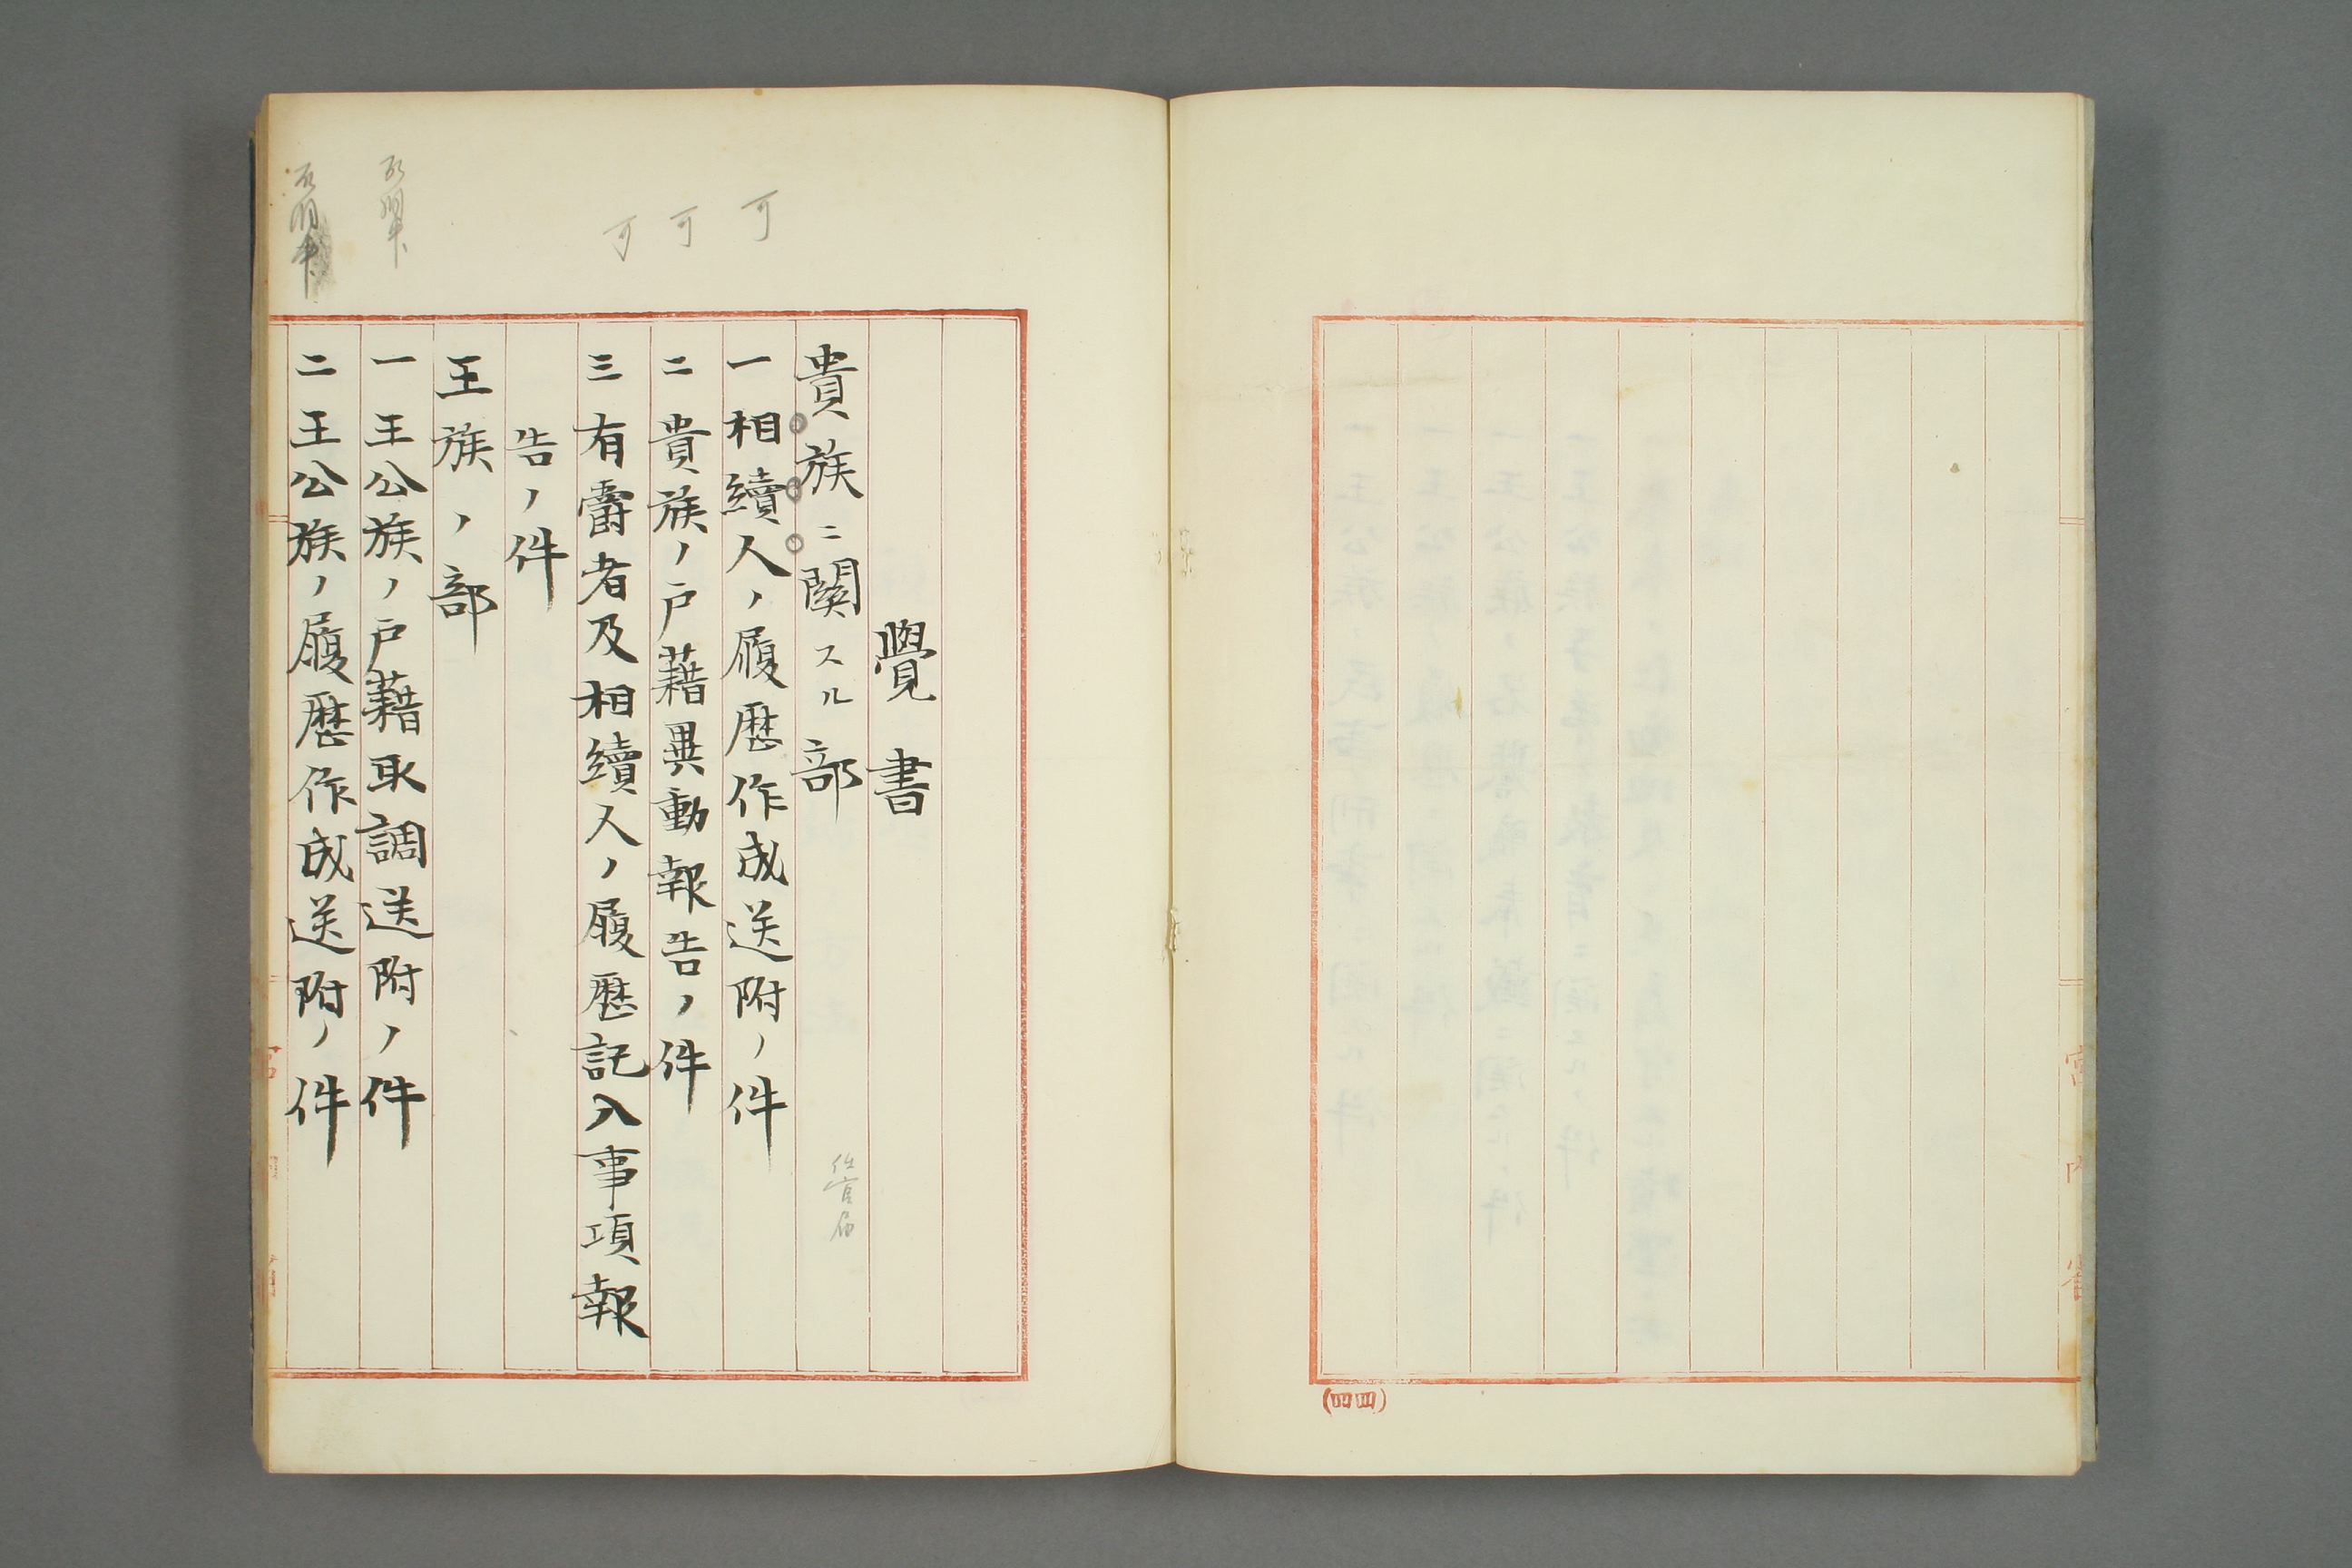 宮内省
(四四)
覺書
貴族ニ関スル部
一相續人ノ履歴作成送附ノ件
二貴族ノ戸籍異動報告ノ件
三有爵者及相續人ノ履歴記入事項報
告ノ件
王族ノ部
一王公族ノ戸籍取調送附ノ件
二王公族ノ履歴作成送附ノ件
可
可
可